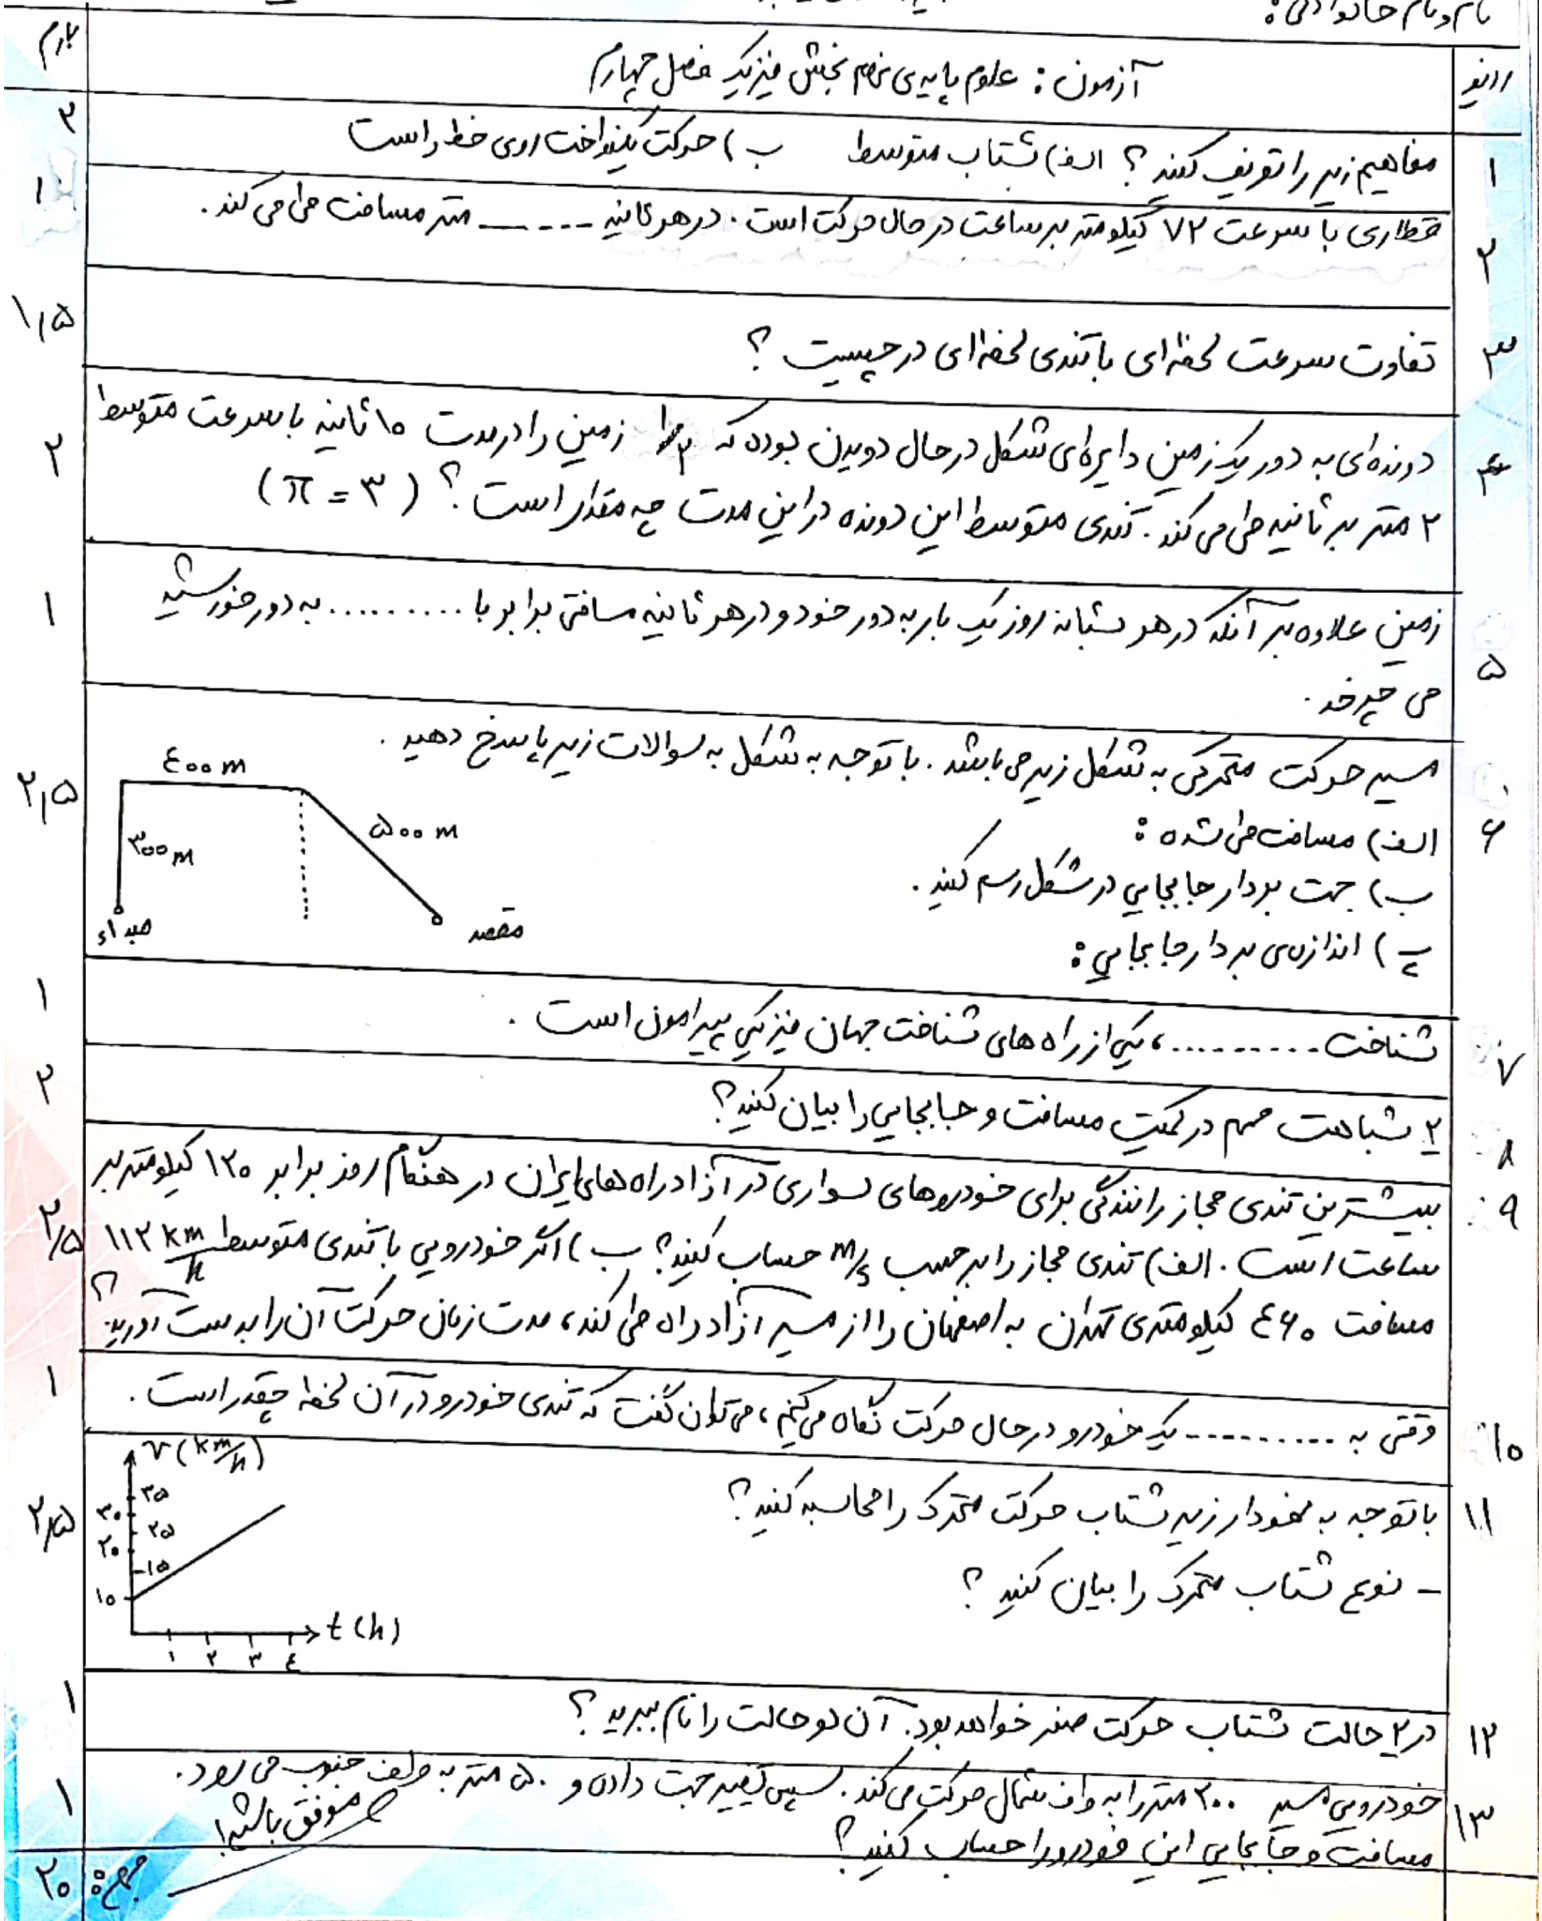 نام و نام خانوادگی:
ردیف
آزمون: علوم پایه‌ی نهم بخش فیزیک فصل چهارم
بارم
۱
مفاهیم زیر را تعریف کنید؟ الف) شتاب متوسط ب) حرکت یکنواخت روی خط راست
۲
۲
قطاری با سرعت ۷۲ کیلومتر بر ساعت در حال حرکت است. در هر ثانیه ------ متر مسافت طی می کند.
۱
۳
تفاوت سرعت لحظه‌ای با تندی لحظه‌ای در چیست؟
۱٫۵
۴
دونده‌ای به دور یک زمین دایره‌ای شکل در حال دویدن بوده که ۱/۲ زمین را در مدت ۱۰ ثانیه با سرعت متوسط
۲ متر بر ثانیه طی می کند. تندی متوسط این دونده در این مدت چه مقدار است؟ (π = ۳)
۲
۵
زمین علاوه بر آنکه در هر شبانه روز یک بار به دور خود و در هر ثانیه مسافتی برابر با .......... به دور خورشید
می چرخد.
۱
۶
مسیر حرکت متحرکی به شکل زیر می باشد. با توجه به شکل به سوالات زیر پاسخ دهید.
الف) مسافت طی شده:
ب) جهت بردار جابجایی در شکل رسم کنید.
پ) اندازه‌ی بردار جابجایی:
۴۰۰ m
۳۰۰ m
۵۰۰ m
مبداء
مقصد
۲٫۵
۷
شناخت ..........، یکی از راه های شناخت جهان فیزیکی پیرامون است.
۱
۸
۲ شباهت مهم در کمیت مسافت و جابجایی را بیان کنید؟
۲
۹
بیشترین تندی مجاز رانندگی برای خودروهای سواری در آزادراه های ایران در هنگام روز برابر ۱۲۰ کیلومتر بر
ساعت است. الف) تندی مجاز را برحسب m/s حساب کنید؟ ب) اگر خودرویی با تندی متوسط ۱۱۲ km/h
مسافت ۴۶۰ کیلومتری تهران به اصفهان را از مسیر آزاد راه طی کند، مدت زمان حرکت آن را بدست آورید؟
۲/۵
۱۰
وقتی به .......... یک خودرو در حال حرکت نگاه می‌کنیم، می توان گفت که تندی خودرو در آن لحظه چقدر است.
۱
۱۱
با توجه به نمودار زیر شتاب حرکت متحرک را محاسبه کنید؟
- نوع شتاب متحرک را بیان کنید؟
v (km/h)
۳۵
۳۰
۲۵
۲۰
۱۵
۱۰
t (h)
۱ ۲ ۳ ۴
۲٫۵
۱۲
در ۲ حالت شتاب حرکت صفر خواهد بود. آن دو حالت را نام ببرید؟
۱
۱۳
خودرویی مسیر ۳۰۰ متر را به طرف شمال حرکت می کند. سپس تغییر جهت داده و ۵۰ متر به طرف جنوب می رود.
مسافت و جابجایی این خودرو را حساب کنید؟
۱
موفق باشید!
جمع:
۲۰